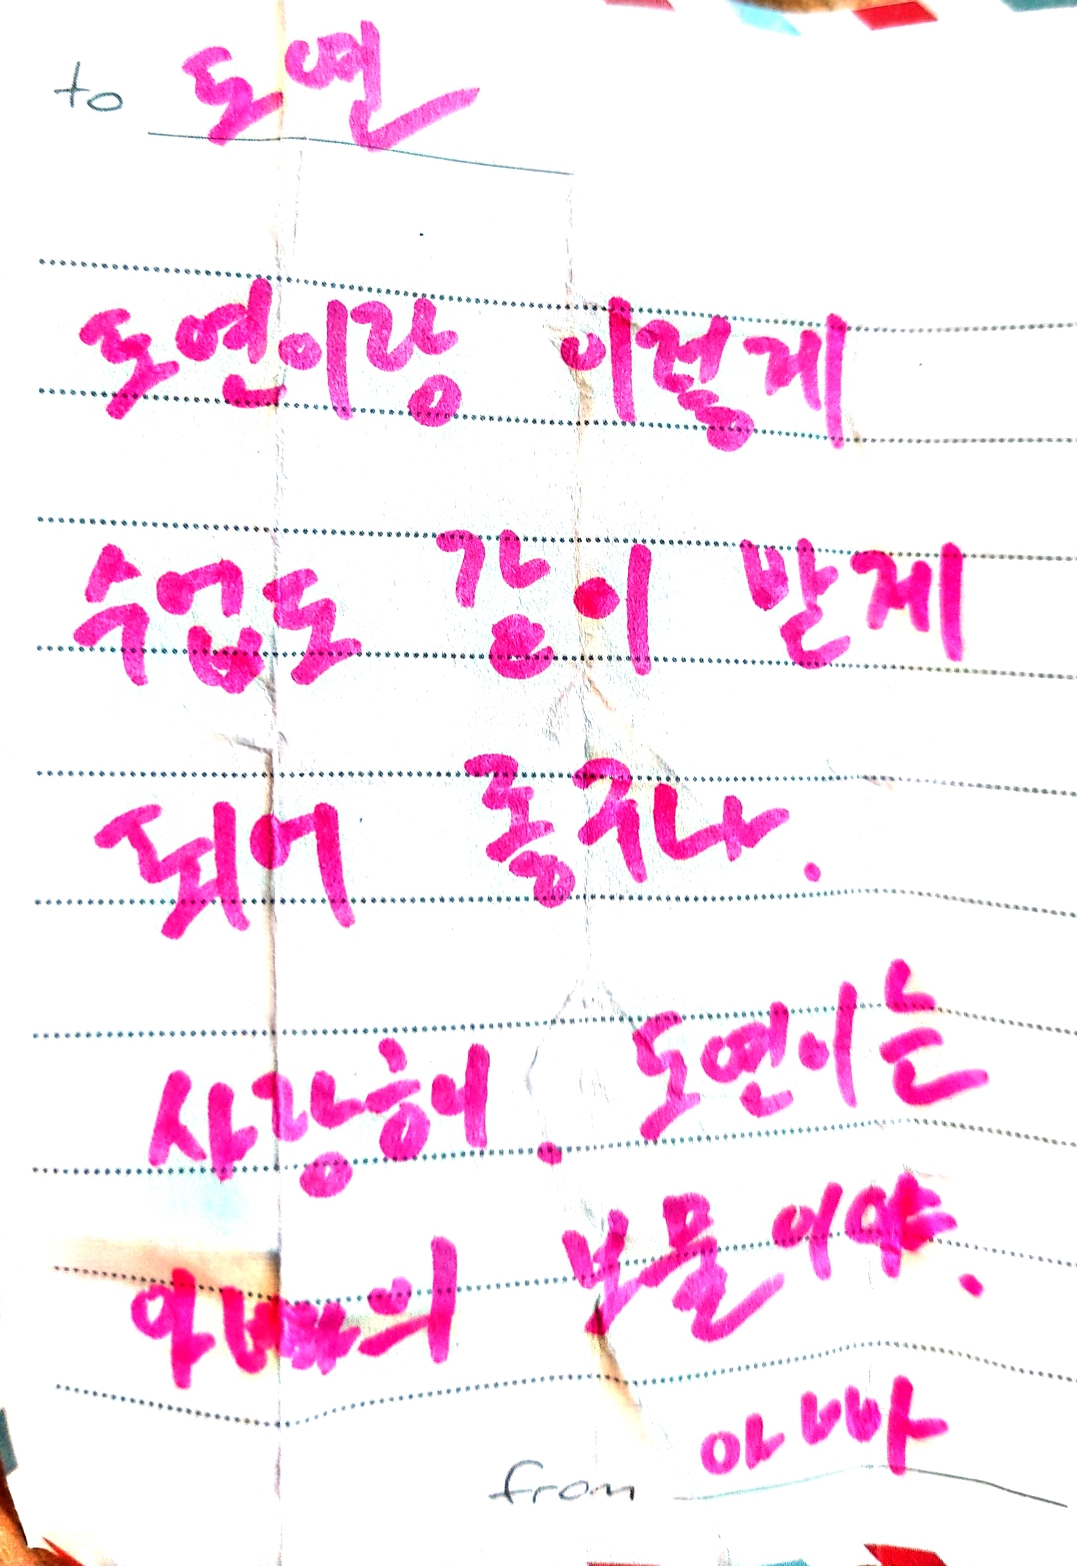 to 도연
도연이랑 이렇게
수업도 같이 받게
되어 좋구나.
사랑해. 도연이는
아빠의 보물이야.
from 아빠